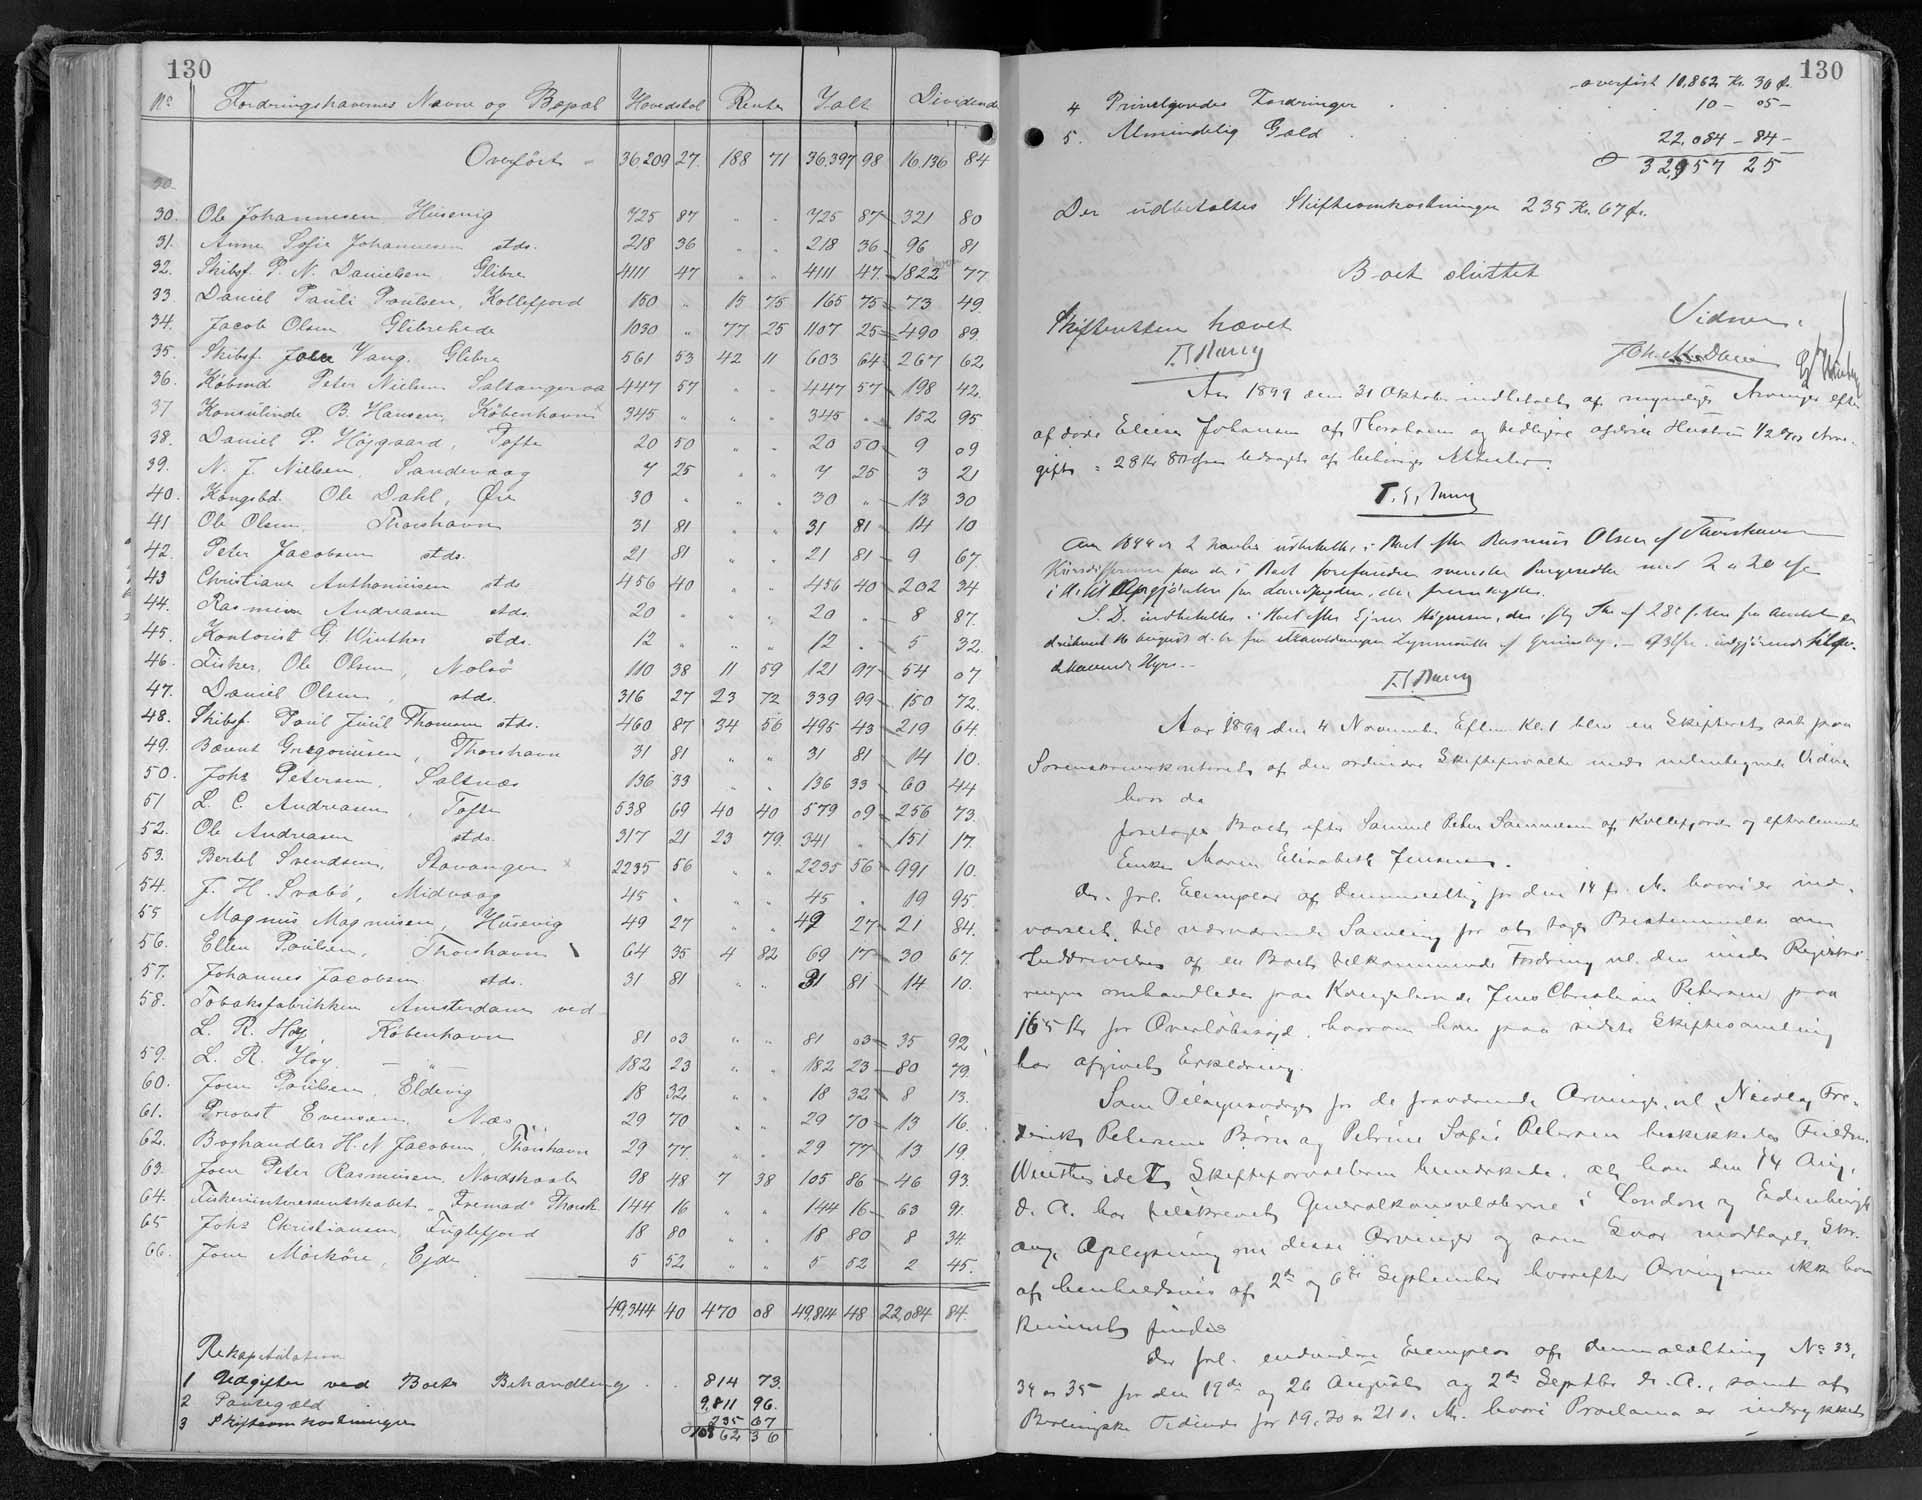 130
No Fordringshavernes Navne og Bopæl Hovedstol Renter Ialt Dividende
Overført 36,209 27. 188 71 36,397 98 16,136 84
30. Ole Johannesen Husevig 725 87 " " 725 87 321 80
31. Anna Sofie Johannesen stds. 218 36 " " 218 36 96 81
32. Skibsf. P. N. Danielsen, Glibre 4111 47 " " 4111 47. 1822 77
33. Daniel Pauli Poulsen, Kollefjord 150 " 15 75 165 75 73 49.
34. Jacob Olsen Glibrehede 1030 " 77 25 1107 25 490 89.
35. Skibsf. Joen Vang. Glibre 561 53 42 11 603 64 267 62
36. Købmd Peter Nielsen Saltangeraa 447 57 " " 447 57 198 42.
37 Konsulinde B. Hansen, København 345 " " " 345 " 152 95.
38. Daniel P. Højgaard, Tofte 20 50 " " 20 50 9 09
39. N. J. Nielsen, Sandevaag 7 25 " " 7 25 3 21
40. Kongsbd. Ole Dahl, Øre 30 " " " 30 " 13 30
41 Ole Olsen, Thorshavn 31 81 " " 31 81 14 10
42. Peter Jacobsen stds. 21 81 " " 21 81 9 67.
43 Christiane Anthoniusen stds 456 40 " " 456 40 202 34
44. Rasmine Andreasen stds. 20 " " " 20 " 8 87.
45. Kontorist G. Winther stds. 12 " " " 12 " 5 32.
46. Fisker, Ole Olsen, Nolsø 110 38 11 59 121 97 54 07
47. Daniel Olsen, stds. 316 27 23 72 339 99 150 72.
48. Skibsf. Poul Juul Thomsen stds. 460 87 34 56 495 43 219 64.
49. Bærent Gregoriusen, Thorshavn 31 81 " " 31 81 14 10.
50. Johs Petersen, Saltnæs 136 33 " " 136 33 60 44
51 L. C. Andreasen, Tofte 538 69 40 40 579 09 256 73.
52. Ole Andreasen stds. 317 21 23 79. 341 " 151 17.
53. Bertel Svendsen, Stavanger 2235 56 " " 2235 56 991 10.
54. J. H. Svabö, Midvaag 45 " " " 45 " 19 95.
55 Magnus Magnusen, Husevig 49 27 " " 49 27 21 84.
56. Ellen Poulsen, Thorshavn 64 35 4 82 69 17 30 67
57. Johannes Jacobsen stds. 31 81 " " 31 81 14 10.
58. Tobaksfabrikken Amsterdam ved
L. R. Hoy, København 81 03 " " 81 03 35 92
59. L. R. Hoy. — " — 182 23 " " 182 23 80 79.
60. Joen Poulsen, Eldevig 18 32 " " 18 32 8 13.
61. Provst Evensen, Næs 29 70 " " 29 70 13 16.
62. Boghandler H. N. Jacobsen, Thorshavn 29 77 " " 29 77 13 19.
63. Joen Peter Rasmussen, Nordskaale 98 48 7 38 105 86 46 93.
64. Fiskeriinteressentskabet "Fremad" Thorsh. 144 16 " " 144 16 63 91.
65 Johs Christiansen, Fuglefjord 18 80 " " 18 80 8 34.
66. Joen Mörköre, Ejde 5 52 " " 5 52 2 45.
49,344 40 470 08 49,814 48 22,084 84.
Rekapitulation
1 Udgifter ved Boets Behandling 814 73.
2 Pantegæld 9,811 96.
3 Skifteomkostninger 235 67
10862 36
130
overført 10,862 Kr. 30 Ø.
4 Privilegerede Fordringer 10 – 05 –
5. Almindelig Gæld 22,084 – 84 –
32,957 25
Der udbetaltes Skifteomkostninger 235 Kr. 67 Ør.
Boet sluttet
Skifteretten hævet Vidner:
Aar 1899 den 31 Oktober indbetalt af myndige Arvinger efter
afdøde Eliesa Johansen af Thorshavn og tidligere afdøde Hustru 1/2 % Arve-
gift = 28 Kr 80 Øre ledsaget af behørige Attester.
Aar 1899 d. 2 November udbetaltes i Boet efter Rasmus Olsen af Thorshavn
Kursdifferencen paa de i Boet forefundne svenske Pengesedler med 2 Kr 20 Øre
S. D. indbetaltes i Boet efter Ejner Mignesen,
Aar 1899 den 4 November Efterm. Kl. 1 blev en Skifteret sat paa
Sorenskriverkontoret af den ordinære Skifteforvalter med undertegnede Vidner
hvor da
foretoges Boet efter Samuel Peter Samuelsen af Kollefjord og efterlevende
Enke Maren Elisabeth Jensen.
Der frl. Exemplar af Dimmalætting for den 14 f. M. hvori er ind-
varslet til nærværende Samling for at tage Bestemmelse om
Inddrivelsen af en Boet tilkommende Fordring vl. den under Registre-
ringen omhandlede paa Kongsbonde Jens Christian Petersen paa
165 Kr for Overløbsejd. hvorom han paa sidste Skiftesamling
har afgivet Erklæring.
Som Tilsynsværge for de fraværende Arvinger, vl. Nicolaj Fre-
deriks Petersens Børn og Petrine Sofie Petersen beskikkedes Fuldm.
Winther idet Skifteforvalteren bemærkede, at han den 14 Aug.
d. A. har tilskrevet Generalkonsulaterne i London og Edinburgh
ang. Oplysning om disse Arvinger og som Svar modtaget Skr.
af henholdsvis af 2de og 6te September hvorefter Arvingerne ikke kan
kunnet findes
Der frl. endvidere Exemplar af Dimmalætting No 33,
34 og 35 for den 19de og 26 August og 2de Septbr. d. A., samt af
Berlingske Tidende for 19, 20 og 21 s. M. hvori Proclama er indrykket